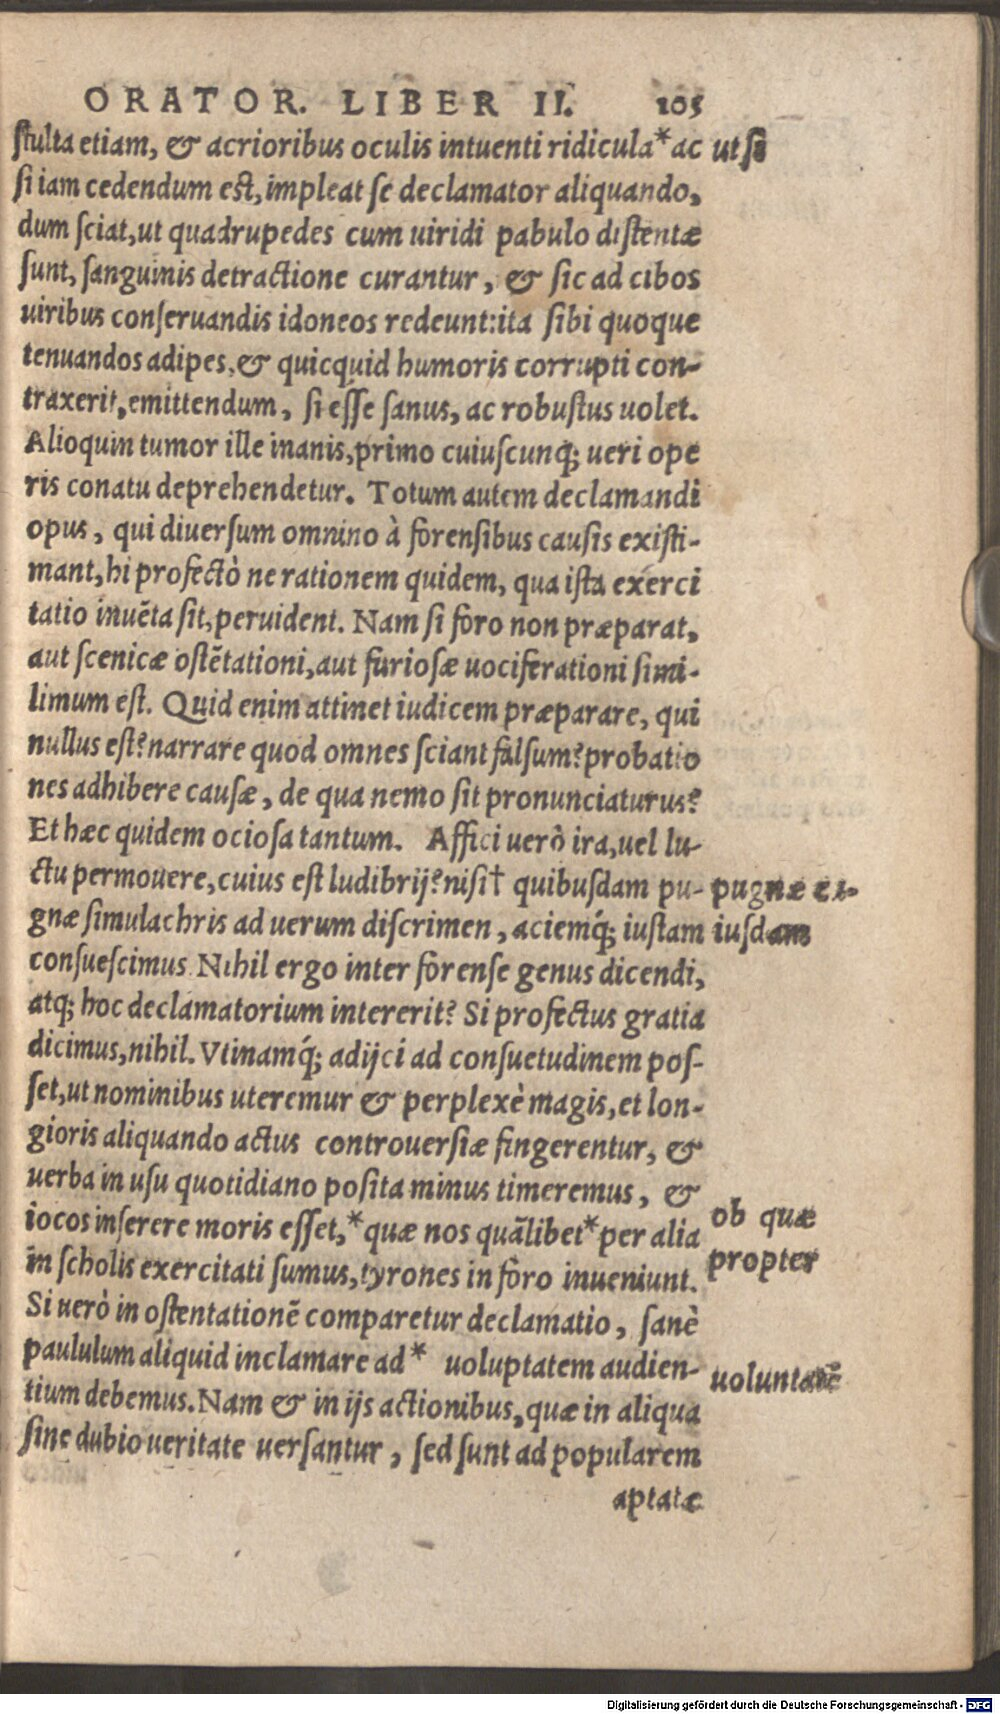 ORATOR. LIBER II. 105
ſtulta etiam, & acrioribus oculis intuenti ridicula* ac ut ſi
ſi iam cedendum eſt, impleat ſe declamator aliquando,
dum ſciat, ut quadrupedes cum uiridi pabulo diſtentæ
ſunt, ſanguinis detractione curantur, & ſic ad cibos
uiribus conſeruandis idoneos redeunt: ita ſibi quoque
tenuandos adipes, & quicquid humoris corrupti con-
traxerit, emittendum, ſi eſſe ſanus, ac robuſtus uolet.
Alioquin tumor ille inanis, primo cuiuſcunq; ueri ope
ris conatu deprehendetur. Totum autem declamandi
opus, qui diuerſum omnino à forenſibus cauſis exiſti-
mant, hi profectò ne rationem quidem, qua iſta exerci
tatio inuẽta ſit, peruident. Nam ſi foro non præparat,
aut ſcenicæ oſtẽtationi, aut furioſæ uociferationi ſimi-
limum eſt. Quid enim attinet iudicem præparare, qui
nullus eſt? narrare quod omnes ſciant falſum? probatio
nes adhibere cauſæ, de qua nemo ſit pronunciaturus?
Et hæc quidem ocioſa tantum. Affici uerò ira, uel lu-
ctu permouere, cuius eſt ludibrij? niſi† quibuſdam pu- pugnæ ei-
gnæ ſimulachris ad uerum diſcrimen, aciemq́; iuſtam iuſdam
conſueſcimus. Nihil ergo inter forenſe genus dicendi,
atq; hoc declamatorium intererit? Si profectus gratia
dicimus, nihil. Vtinamq́; adijci ad conſuetudinem poſ-
ſet, ut nominibus uteremur & perplexè magis, et lon-
gioris aliquando actus controuerſiæ fingerentur, &
uerba in uſu quotidiano poſita minus timeremus, &
iocos inſerere moris eſſet, * quæ nos quãlibet* per alia ob quæ
in ſcholis exercitati ſumus, tyrones in foro inueniunt. propter
Si uerò in oſtentationẽ comparetur declamatio, ſanè
paululum aliquid inclamare ad* uoluptatem audien- uoluntatẽ
tium debemus. Nam & in ijs actionibus, quæ in aliqua
ſine dubio ueritate uerſantur, ſed ſunt ad popularem
aptatæ
Digitalisierung gefördert durch die Deutsche Forschungsgemeinschaft - DFG